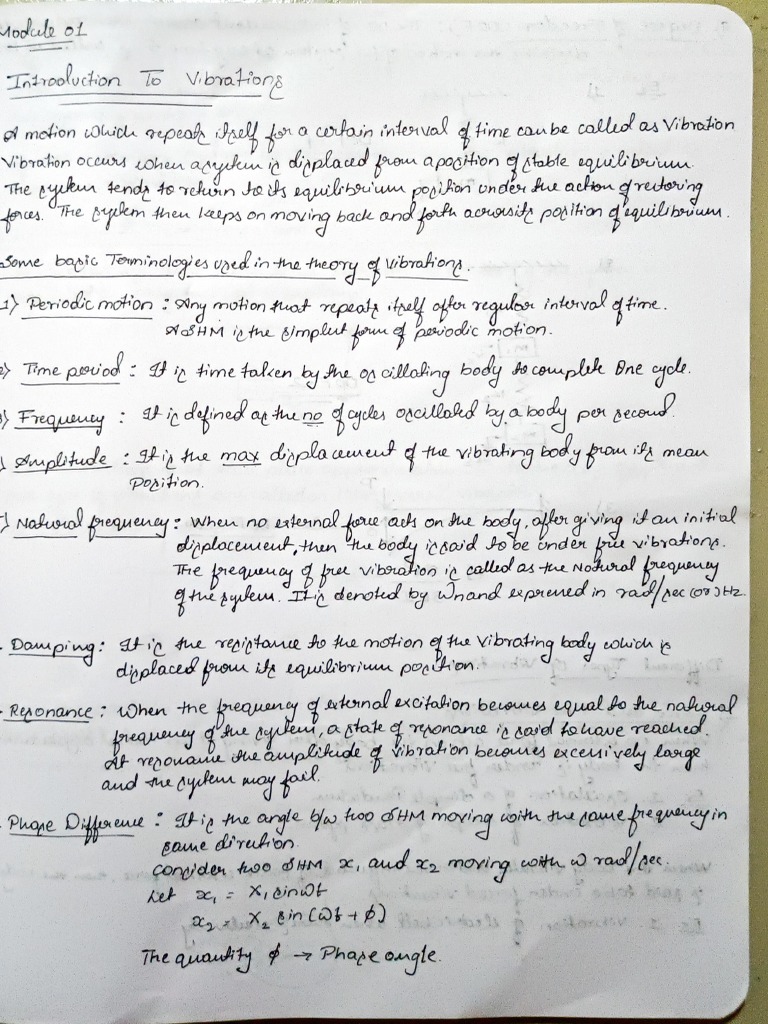 Module 01
Introduction To Vibrations
A motion which repeats itself for a certain interval of time can be called as Vibration
Vibration occurs when a system is displaced from a position of stable equilibrium.
The system tends to return to its equilibrium position under the action of restoring
forces. The system then keeps on moving back and forth across its position of equilibrium.
Some basic Terminologies used in the theory of Vibrations.
1) Periodic motion : Any motion that repeats itself after regular interval of time.
A SHM is the simplest form of periodic motion.
2) Time period : It is time taken by the oscillating body to complete One cycle.
3) Frequency : It is defined as the no of cycles oscillated by a body per second.
) Amplitude : It is the max displacement of the vibrating body from its mean
position.
5) Natural frequency : When no external force acts on the body, after giving it an initial
displacement, then the body is said to be under free vibrations.
The frequency of free vibration is called as the Natural frequency
of the system. It is denoted by Wn and expressed in rad/sec (or) Hz.
. Damping : It is the resistance to the motion of the vibrating body which is
displaced from its equilibrium position.
. Resonance : When the frequency of external excitation becomes equal to the natural
frequency of the system, a state of resonance is said to have reached.
At resonance the amplitude of vibration becomes excessively large
and the system may fail.
. Phase Difference : It is the angle b/w two SHM moving with the same frequency in
same direction.
Consider two SHM x₁ and x₂ moving with ω rad/sec.
Let x₁ = X₁ sin ωt
x₂ = X₂ sin (ωt + φ)
The quantity φ → Phase angle.